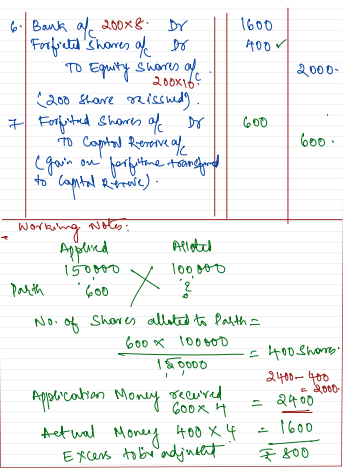 6. Bank a/c 200×8. Dr 1600
Forfieted Shares a/c Dr 400 ✓
To Equity Shares a/c 2000.
200×10.
(200 share reissued).
7 Forfited Shares a/c Dr 600
To Capital Reserve a/c 600.
(gain on forfitme transfered
to Capital Reserve).
Working Notes:
Applied Alloted
150000 100,000
Parth 600 ?
No. of Shares alloted to Parth =
600 × 100000
150000 = 400 Shares.
2400 – 400
= 2000
Application Money received
600 × 4 = 2400
Actual Money 400 × 4 = 1600
Excess to be adjusted ₹ 800